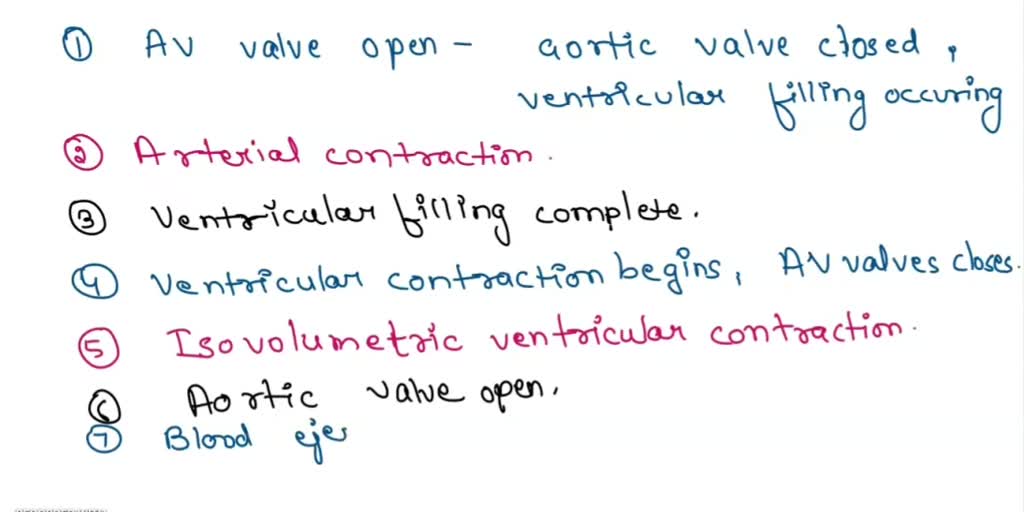 ① AV valve open - aortic valve closed,
ventricular filling occuring
② Arterial contraction.
③ Ventricular filling complete.
④ Ventricular contraction begins, AV valves closes.
⑤ Isovolumetric ventricular contraction.
⑥ Aortic valve open.
⑦ Blood ejec